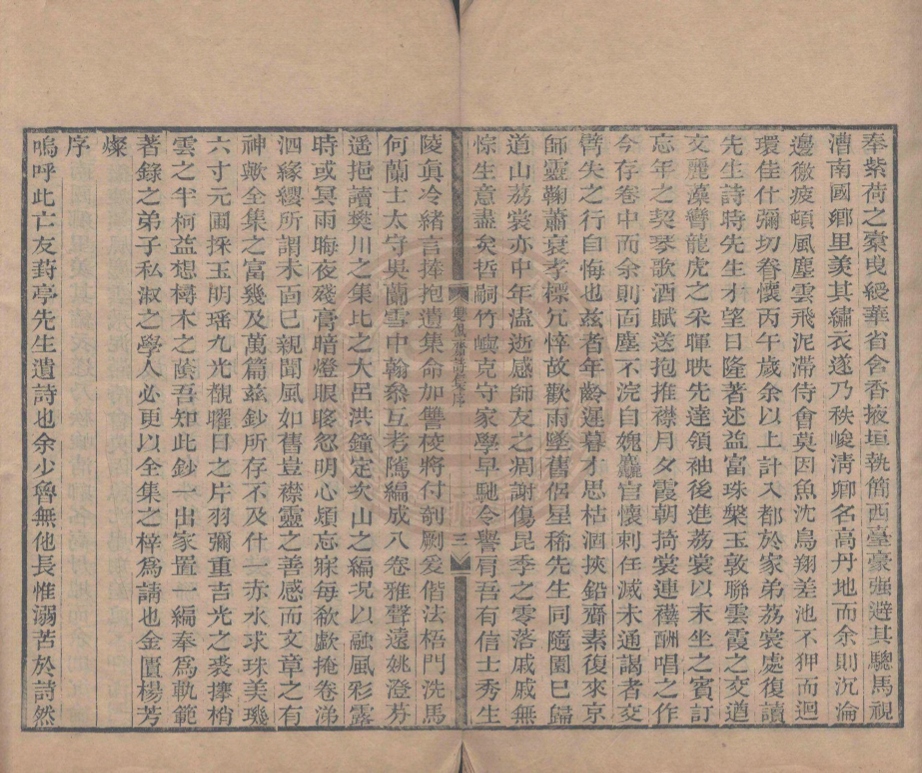 奉紫荷之橐曳綬華省含香掖垣執簡西臺豪強避其驄馬視
漕南國鄉里羨其繡衣遂乃秩峻淸卿名高丹地而余則沉淪
邊徼疲頓風塵雲飛泥滯侍會莫因魚沈鳥翔差池不狎而迴
環佳什彌切眷懷丙午歲余以上計入都於家弟荔裳處復讀
先生詩時先生才望日隆著述益富珠槃玉敦聯雲霞之交遒
文麗藻彎龍虎之采暉映先達領袖後進荔裳以末坐之賓訂
忘年之契琴歌酒賦送抱推襟月夕霞朝掎裳連襼酬唱之作
今存卷中而余則面塵不浣自媿麤官懷刺任滅未通謁者交
臂失之行自悔也茲者年齡遲暮才思枯涸挾鉛齎素復來京
師靈輀蕭哀孝標冗悴故歡雨墜舊侶星稀先生同隨園已歸
道山荔裳亦中年溘逝感師友之凋謝傷昆季之零落戚戚無
悰生意盡矣哲嗣竹嶼克守家學早馳令譽肩吾有信士秀生
陵眞冷緒言捧抱遺集命加讐校將付剞劂爰偕法梧門洗馬
何蘭士太守吳蘭雪中翰叅互考隲編成八卷雅聲遠姚澄芬
遥挹讀樊川之集比之大呂洪鐘定次山之編況以融風彩露
時或冥雨晦夜殘膏暗燈眼眵忽明心煩忘寐每欷歔掩卷涕
泗緣纓所謂未面已親聞風如舊豈襟靈之善感而文章之有
神歟全集之富幾及萬篇茲鈔所存不及什一赤水求珠美璣
六寸元圃採玉明瑤九光覩曜日之片羽彌重吉光之裘攗梢
雲之半柯益想橒木之蔭吾知此鈔一出家置一編奉爲軌範
著錄之弟子私淑之學人必更以全集之梓爲請也金匱楊芳
燦
序
嗚呼此亡友葑亭先生遺詩也余少魯無他長惟溺苦於詩然
三